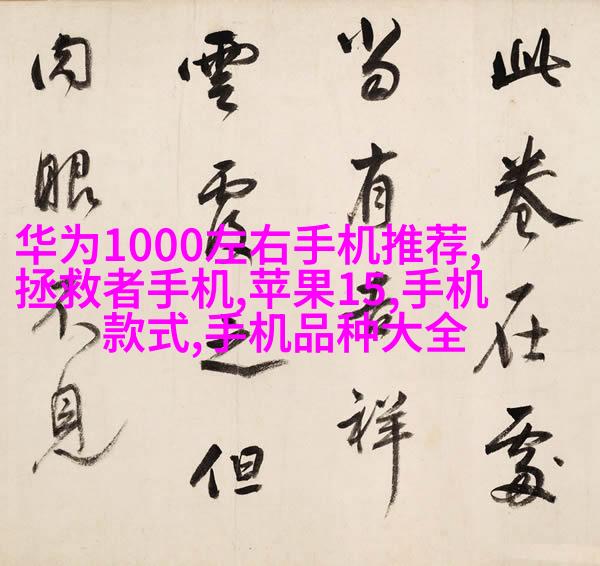 此卷在處
當有吉祥
雲覆之但
肉眼不見
华为1000左右手机推荐,
拯救者手机,苹果15,手机
款式,手机品种大全